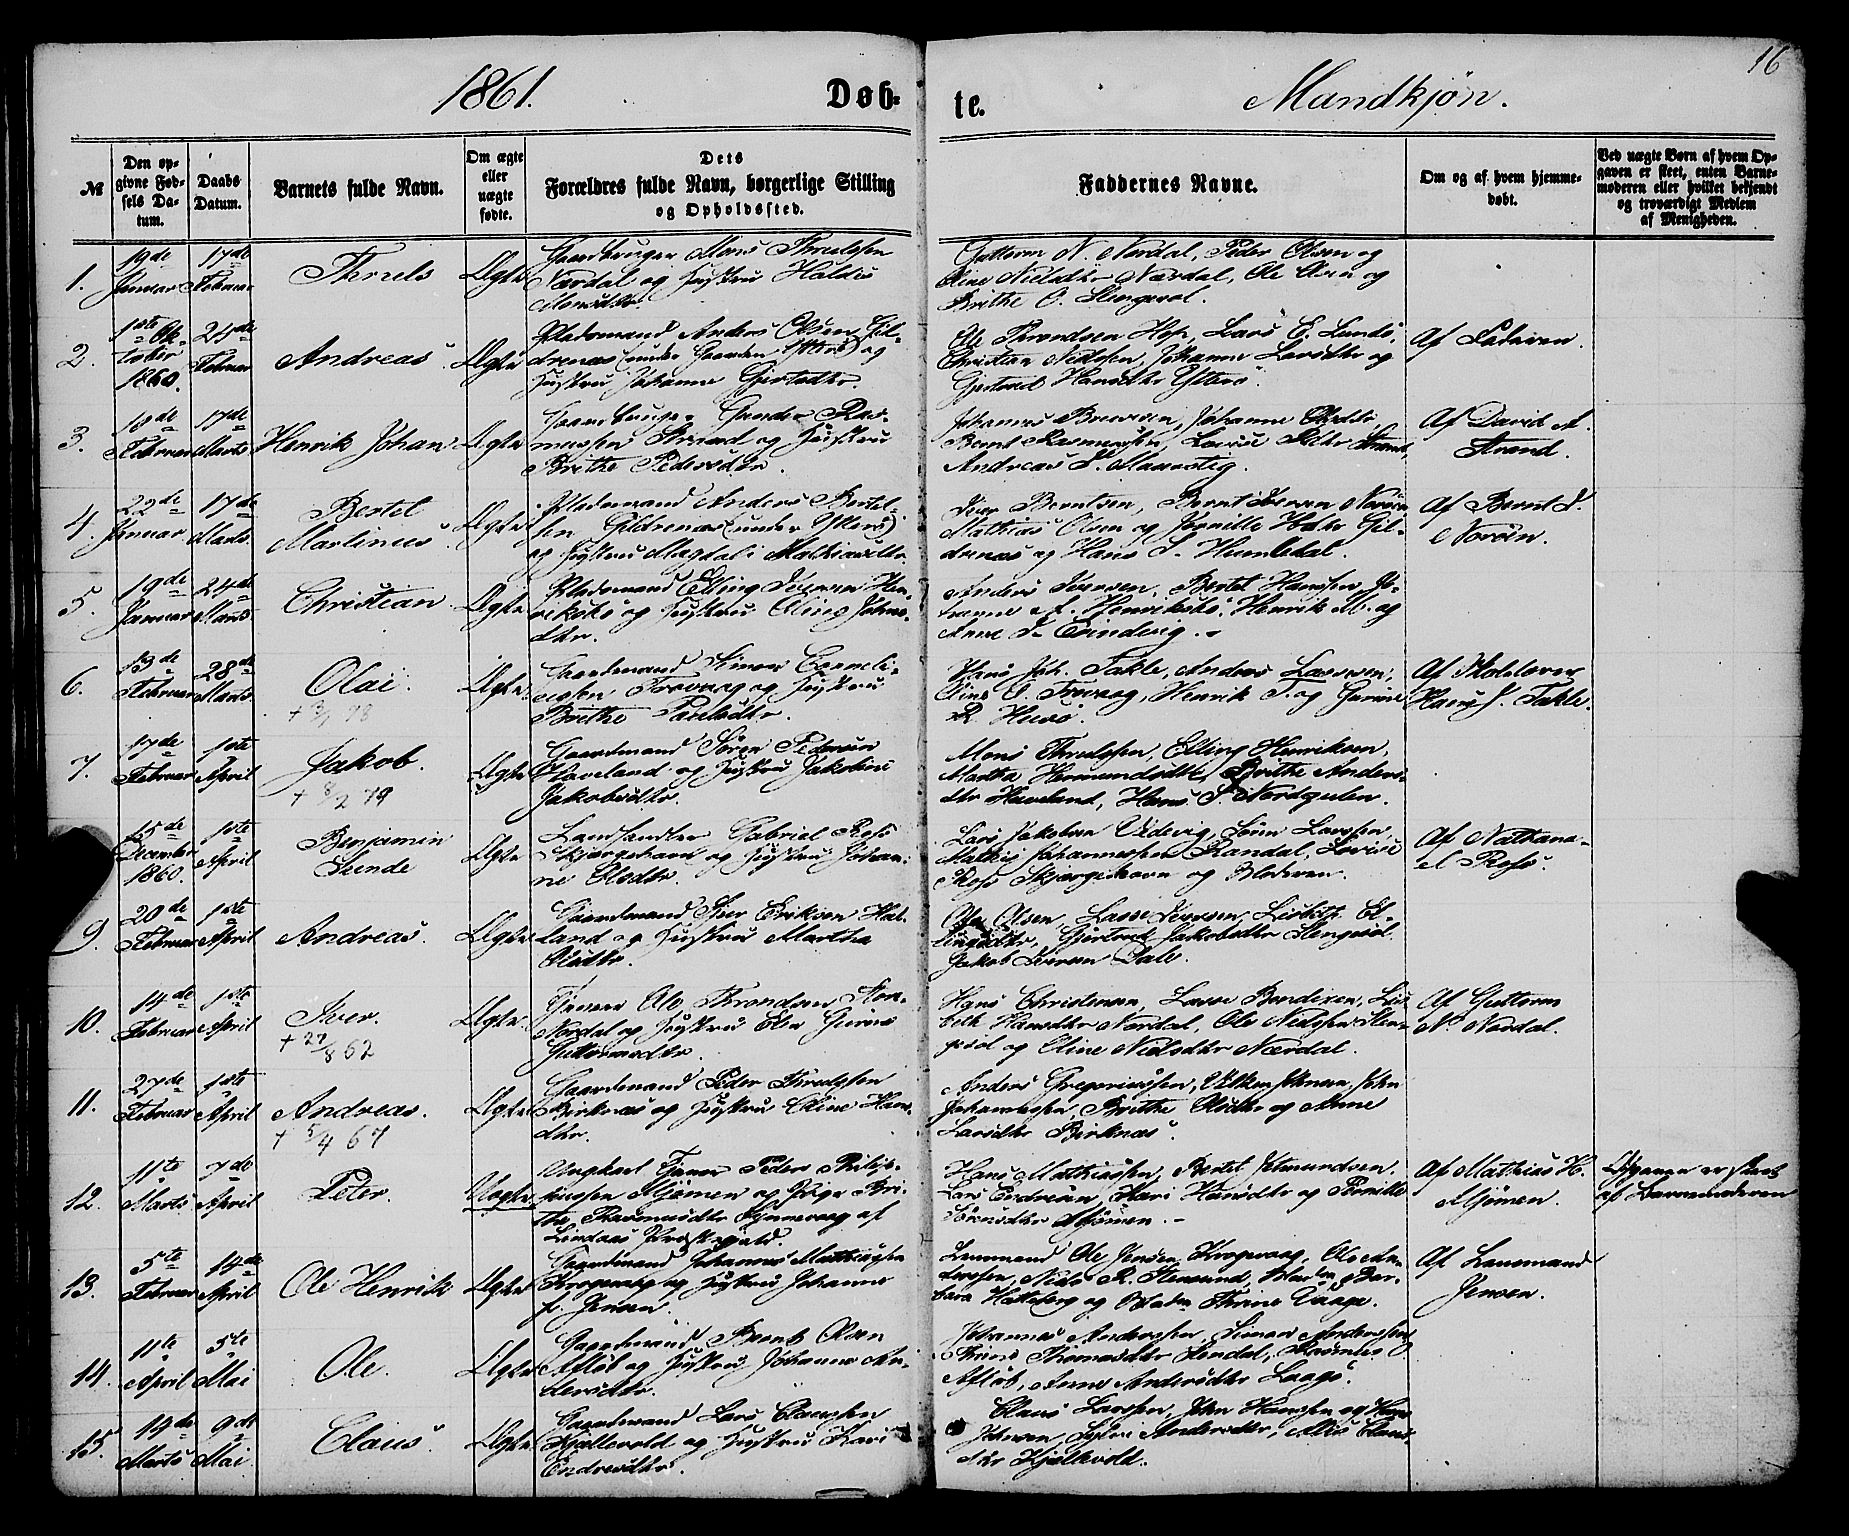 16
1861. Døb- te. Mandkjøn.
№ Den opgivne Fødsels Datum. Daabs Datum. Barnets fulde Navn. Om ægte eller uægte fødte. Dets Forældres fulde Navn, borgerlige Stilling og Opholdssted. Faddernes Navne. Om og af hvem hjemmedøbt. Ved uægte Børn af hvem Opgaven er skeet, enten Barnemoderen eller hvilket bekjendt og troværdigt Medlem af Menigheden.
1. 19de Januar 17de Februar Thruls Ægte
Gaardbruger Mons Thrulssen
Nærdal og Hustru
Monsdtr.
Guttorm N. Nærdal, Peder Olsen og
Eline Nielsdtr Nærdal, Ole Olsen og
Brithe O. Stengevol.
2. 1ste October 1860. 24de Februar Andreas Ægte
Pladsmand Anders Olsen Gil-
drenæs (under Gaarden Ytterø) og
Hustru Johanne Gjertsdtr.
Ole Throndsen Hop, Lars E. Lunds,
Christian Nielssen, Johanne Larsdtr og
Hansdtr Ytterø.
Af Faderen.
3. 18de Februar 17de Marts Henrik Johan Ægte
Gaardbruger Gunder Ras-
mussen Strand og Hustru
Brithe Pedersdtr.
Johannes
Bernt Rasmussen, Pedtr Strand,
Andreas
Af David A.
Strand.
4. 22de Januar 17de Marts Bertel Martinus Ægte
Pladsmand Anders Bertel-
sen Gildrenæs (under Ytterø)
og Hustru Magdali Mathiasdtr.
Iver Berntsen, Bernt Iversen Norøen
Mathias Olsen og Pernille Gil-
drenæs og Hans Humledal.
Af Bernt I.
Norøen.
5. 19de Januar 24de Marts Christian Ægte
Pladsmand Elling Iversen Hen-
riksbø og Hustru Eline Johns-
dtr.
Anders Iversen, Bertel Hanssen, Jo-
hanne A. Henriksbø, Henrik M. og
Anne I. Evindvig.
6. 13de Februar 28de Marts Olai. Ægte
+ 3/1 98
Gaardmand Simon Corneli-
ussen og Hustru
Brithe Paulsdtr.
Hans Joh. Takle, Anders Larssen,
Eline Henrik S. og Gurine
R. Husø.
Af Skolelærer
Hans J. Takle.
7. 17de Februar 1ste April Jakob. Ægte
+ 8/2 79
Gaardmand Søren Pedersen
Haveland og Hustru Jakobine
Jakobsdtr.
Mons Thrulssen, Elling Henriksen,
Martha Hermundsdtr, Brithe Anders-
dtr Haveland, Hans S. Nordgulen.
15de December 1860. 1ste April Benjamin Sunde Ægte
Landhandler Gabriel Rosø
Skjærgehavn og Hustru Johan-
ne Olsdtr.
Lars Jakobsen Videvig, Søren Larssen,
Mathis Johannessen Randal, Lovise
Rosø Skjærgehavn og Moderen.
Af Nathana-
el Rosø.
9. 20de Februar 1ste April Andreas. Ægte
Gaardmand Iver Eriksen Hal-
land og Hustru Martha
Olsdtr.
Ole Olsen, Lasse Iversen, Lisbeth El-
lingsdtr, Gjertrud Jakobsdtr Stengevol.
Jakob Iversen Dale.
10. 14de Februar 1ste April Iver. Ægte
+ 27/8 62
Tjener Ole Throndsen
Nærdal og Hustru Gurine
Guttormsdtr.
Hans Christensen, Lasse Bendixen, Lis-
beth Hansdtr Nærdal, Ole Nielssen Sten-
gevol og Eline Nielsdtr Nærdal.
Af Guttorm
N. Nærdal.
11. 27de Februar 1ste April Andreas. Ægte
+ 5/4 67
Gaardmand Peder Thrulssen
Birknæs og Hustru Eline Hans-
dtr.
Anders Gregoriussen, Johnsen, John
Johannessen, Brithe Olsdtr og Anne
Larsdtr Birknæs.
12. 11te Marts 7de April Peter. Uægte
Ungkarl Tjener Peder Philip-
pussen Mjømen og Pige Bri-
the Rasmusdtr af
Lindaas Præstegjeld.
Hans Mathiassen, Bertel
Lars Endresen, Kari Hansdtr og Pernille
Sørensdtr Mjømen.
Af Mathias H.
Mjømen.
Opgaven er skeet
af Barnemoderen
13. 5te Februar 14de April Ole Henrik Ægte
Gaardmand Johannes Mathiassen
Krogevaag og Hustru Johanne
f. Jensen.
Lensmand Ole Jensen Krogevaag, Ole An-
derssen, Niels R. Stensund, Madm Bar-
bara Hatteberg og Madm Thrine Vaage.
Af Lensmand
Jensen.
14. 11te April 5te Mai Ole. Ægte
Gaardmand Olsen
Afløb og Hustru Johanne An-
dersdtr.
Johannes Anderssen, Simon Anderssen
Thomasdtr Rasmus
Afløb, Anne Andersdtr
15. 19de Marts 9de Mai Claus. Ægte
Gaardmand Lars Claussen
Kjellevold og Hustru Kari
Endresdtr.
Claus Larssen, John Hanssen og Hans
Johnsen, Andersdtr, Claus-
dtr Kjellevold.